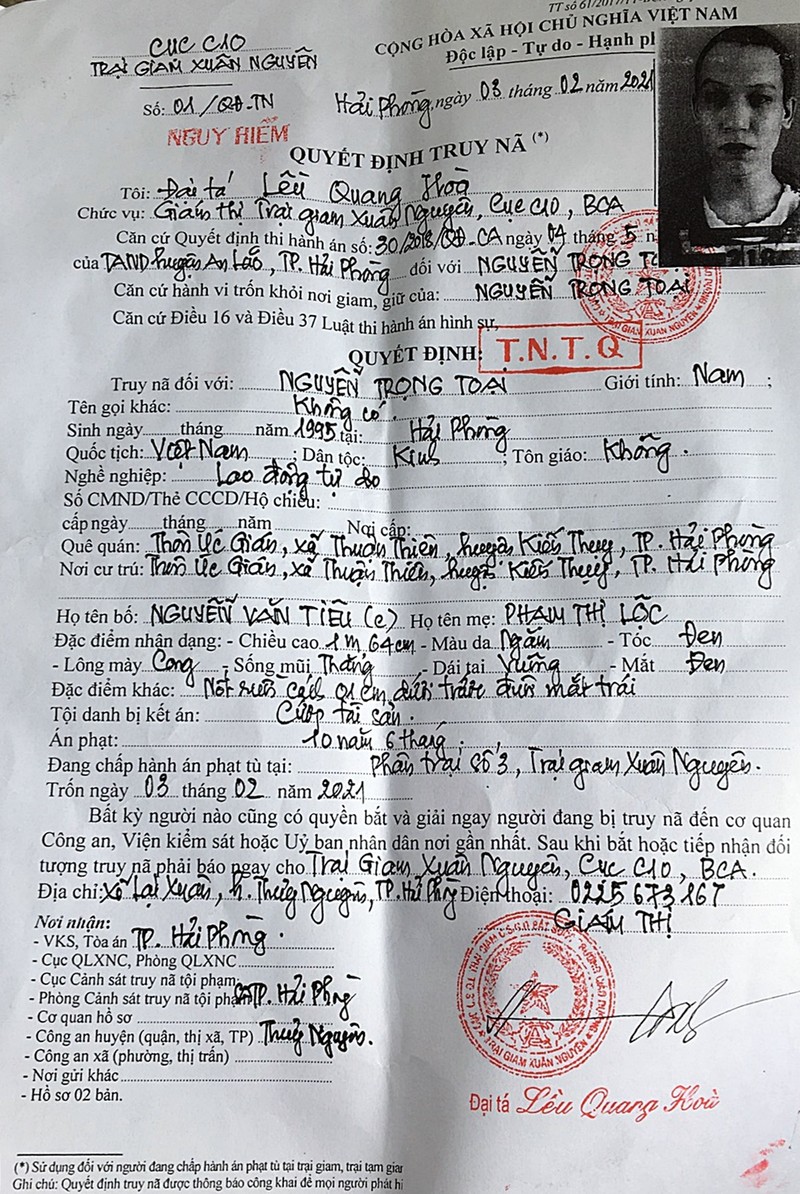 TT số 61/2017/TT-
CỘNG HÒA XÃ HỘI CHỦ NGHĨA VIỆT NAM
Độc lập - Tự do - Hạnh ph
CỤC C10
TRẠI GIAM XUÂN NGUYÊN
Số: 01/QĐ-TN
Hải Phòng, ngày 03 tháng 02 năm 2021
NGUY HIỂM
QUYẾT ĐỊNH TRUY NÃ (*)
Tôi: Đại tá Lều Quang Hoà
Chức vụ: Giám thị Trại giam Xuân Nguyên, Cục C10, BCA
Căn cứ Quyết định thi hành án số: 30/2018/QĐ-CA ngày 04 tháng 5 n
của TAND huyện An Lão, TP. Hải Phòng đối với NGUYỄN TRỌNG TOẠI
Căn cứ hành vi trốn khỏi nơi giam, giữ của: NGUYỄN TRỌNG TOẠI
Căn cứ Điều 16 và Điều 37 Luật thi hành án hình sự,
QUYẾT ĐỊNH:
T.N.T.Q
Truy nã đối với: NGUYỄN TRỌNG TOẠI Giới tính: Nam ;
Tên gọi khác: Không có
Sinh ngày tháng năm 1995 tại: Hải Phòng
Quốc tịch: Việt Nam ; Dân tộc: Kinh ; Tôn giáo: Không.
Nghề nghiệp: Lao động tự do
Số CMND/Thẻ CCCD/Hộ chiếu:
cấp ngày tháng năm Nơi cấp:
Quê quán: Thôn Úc Gián, xã Thuận Thiên, huyện Kiến Thụy, TP. Hải Phòng
Nơi cư trú: Thôn Úc Gián, xã Thuận Thiên, huyện Kiến Thụy, TP. Hải Phòng
Họ tên bố: NGUYỄN VĂN TIÊU (c) Họ tên mẹ: PHẠM THỊ LỘC
Đặc điểm nhận dạng: - Chiều cao 1m 64cm - Màu da Ngăm - Tóc Đen
- Lông mày Cong - Sống mũi Thẳng - Dái tai Vuông - Mắt Đen
Đặc điểm khác: Nốt ruồi cách 01cm dưới trước đuôi mắt trái
Tội danh bị kết án: Cướp tài sản.
Án phạt: 10 năm 6 tháng.
Đang chấp hành án phạt tù tại: phân trại số 3, Trại giam Xuân Nguyên.
Trốn ngày 03 tháng 02 năm 2021
Bất kỳ người nào cũng có quyền bắt và giải ngay người đang bị truy nã đến cơ quan
Công an, Viện kiểm sát hoặc Uỷ ban nhân dân nơi gần nhất. Sau khi bắt hoặc tiếp nhận đối
tượng truy nã phải báo ngay cho Trại Giam Xuân Nguyên, Cục C10, BCA.
Địa chỉ: Xã Lại Xuân, h. Thuỷ Nguyên, TP. Hải Phòng Điện thoại: 0225 673 167
GIÁM THỊ
Nơi nhận:
- VKS, Tòa án TP. Hải Phòng.
- Cục QLXNC, Phòng QLXNC
- Cục Cảnh sát truy nã tội phạm
- Phòng Cảnh sát truy nã tội phạm CATP. Hải Phòng
- Cơ quan hồ sơ
- Công an huyện (quận, thị xã, TP) Thuỷ Nguyên.
- Công an xã (phường, thị trấn)
- Nơi gửi khác
- Hồ sơ 02 bản.
Đại tá Lều Quang Hoà
(*) Sử dụng đối với người đang chấp hành án phạt tù tại trại giam, trại tạm giam
Ghi chú: Quyết định truy nã được thông báo công khai để mọi người phát hi